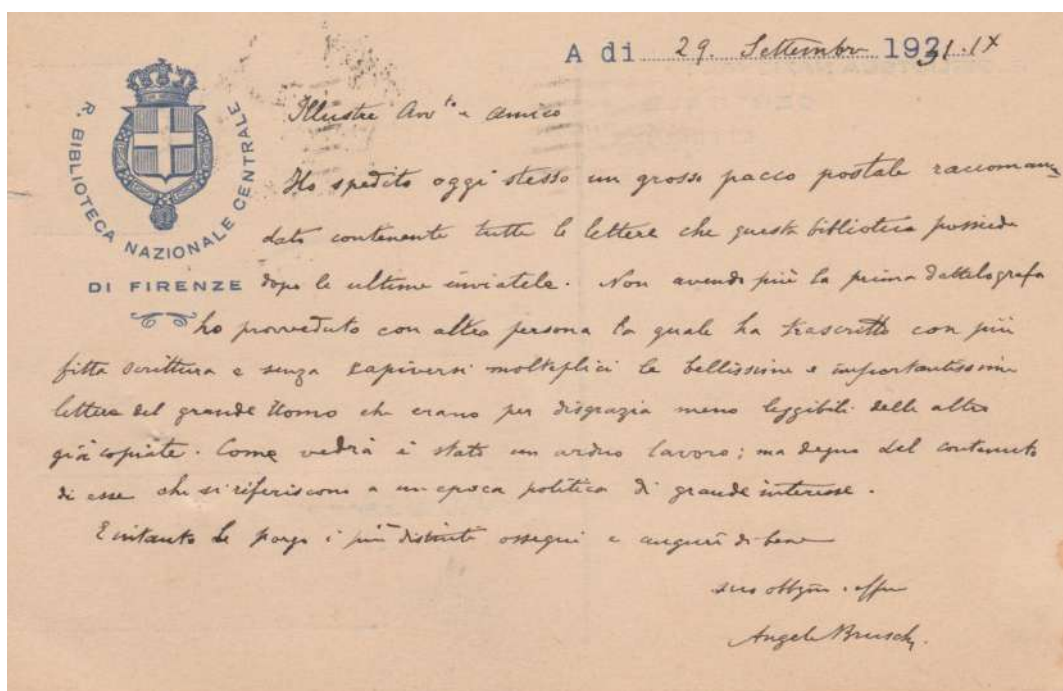 A di 29. Settembre 1931. IX
R. BIBLIOTECA NAZIONALE CENTRALE
DI FIRENZE
Illustre Avv.to e amico
Ho spedito oggi stesso un grosso pacco postale raccoman
dato contenente tutte le lettere che questa biblioteca possiede
dopo le ultime inviatele. Non avendo più la prima dattilografa
ho provveduto con altra persona la quale ha trascritto con più
fitta scrittura e senza molteplici le bellissime e importantissime
lettere del grande Uomo che erano per disgrazia meno leggibili delle altre
già copiate. Come vedrà è stato un arduo lavoro; ma degno del contenuto
di esse che si riferiscono a un epoca politica di grande interesse.
E intanto Le porgo i più distinti ossequi e auguri di bene
suo
Angelo Bruschi.